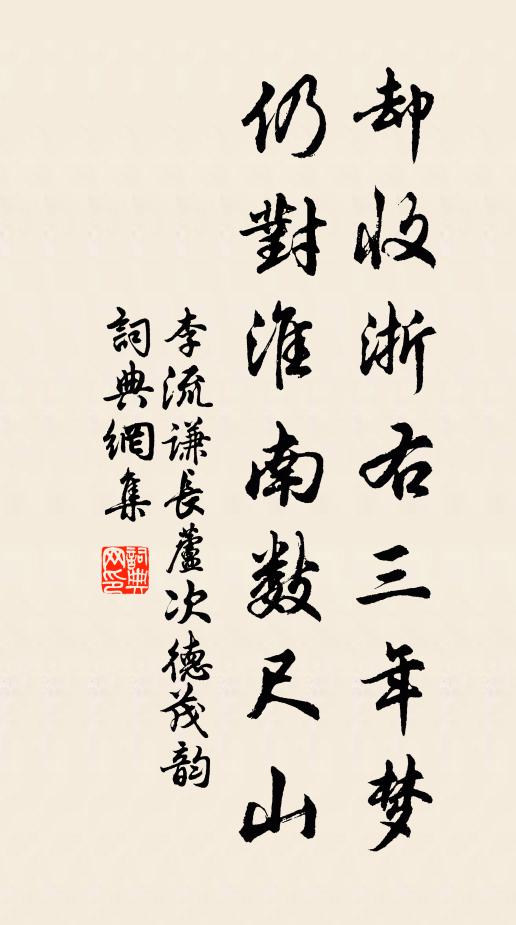 却收浙右三年梦
仍對淮南数尺山
李流謙長蘆次德茂韵
詞典網集
詞典网印